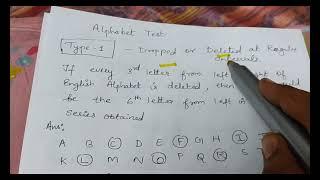 Alphabet Test
Type-1 - Dropped or Deleted at Regular
Intervals.
If every 3rd letter from left of
English Alphabet is deleted, then
be the 6th letter from left in
Series obtained
Ans:
A B C D E F G H I
K L M N O P Q R S